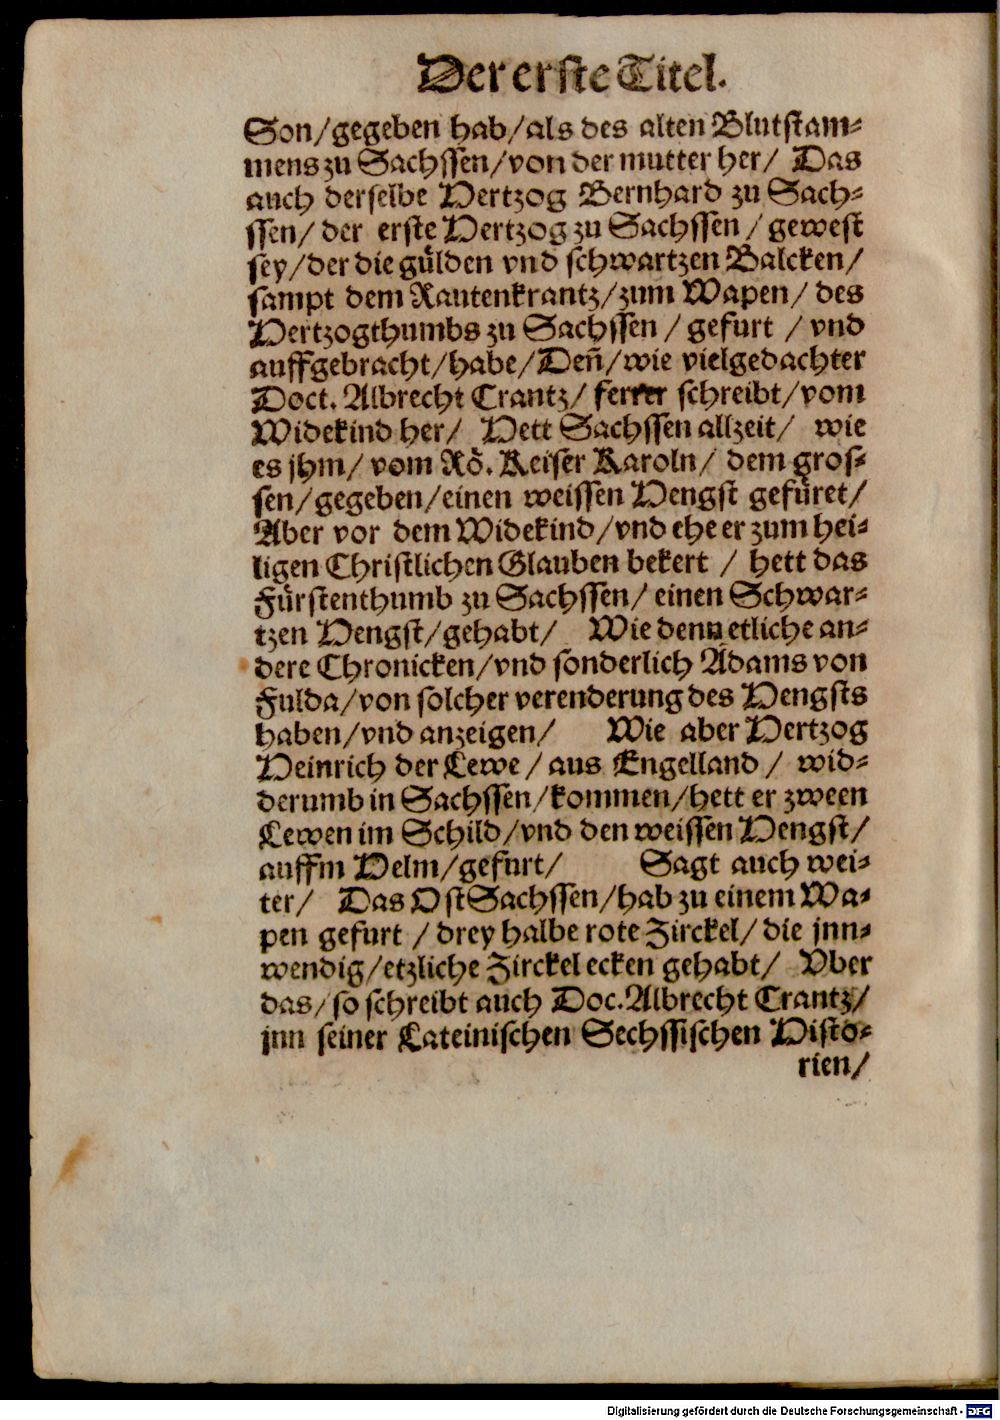 Der erste Titel.
Son/gegeben hab/als des alten Blutstam⸗
mens zu Sachssen/von der mutter her/ Das
auch derselbe Hertzog Bernhard zu Sach⸗
ssen/ der erste Hertzog zu Sachssen / gewest
sey/der die gülden vnd schwartzen Balcken/
sampt dem Rautenkrantz/zum Wapen/ des
Hertzogthumbs zu Sachssen / gefurt / vnd
auffgebracht/habe/Deñ/wie vielgedachter
Doct. Albrecht Crantz/ ferrer schreibt/vom
Widekind her/ Hett Sachssen allzeit/ wie
es jhm/ vom Rö. Keiser Karoln/ dem gros⸗
sen/gegeben/einen weissen Hengst gefüret/
Aber vor dem Widekind/vnd ehe er zum hei⸗
ligen Christlichen Glauben bekert / hett das
Fürstenthumb zu Sachssen/ einen Schwar⸗
tzen Hengst/gehabt/ Wie denn etliche an⸗
dere Chronicken/vnd sonderlich Adams von
Fulda/von solcher verenderung des Hengsts
haben/vnd anzeigen/ Wie aber Hertzog
Heinrich der Lewe / aus Engelland / wid⸗
derumb in Sachssen/kommen/hett er zween
Lewen im Schild/vnd den weissen Hengst/
auffm Helm/gefurt/ Sagt auch wei⸗
ter/ Das OstSachssen/hab zu einem Wa⸗
pen gefurt / drey halbe rote Zirckel/ die jnn⸗
wendig/etzliche Zirckel ecken gehabt/ Vber
das/so schreibt auch Doc. Albrecht Crantz/
jnn seiner Lateinischen Sechssischen Histo⸗
rien/
Digitalisierung gefördert durch die Deutsche Forschungsgemeinschaft - DFG